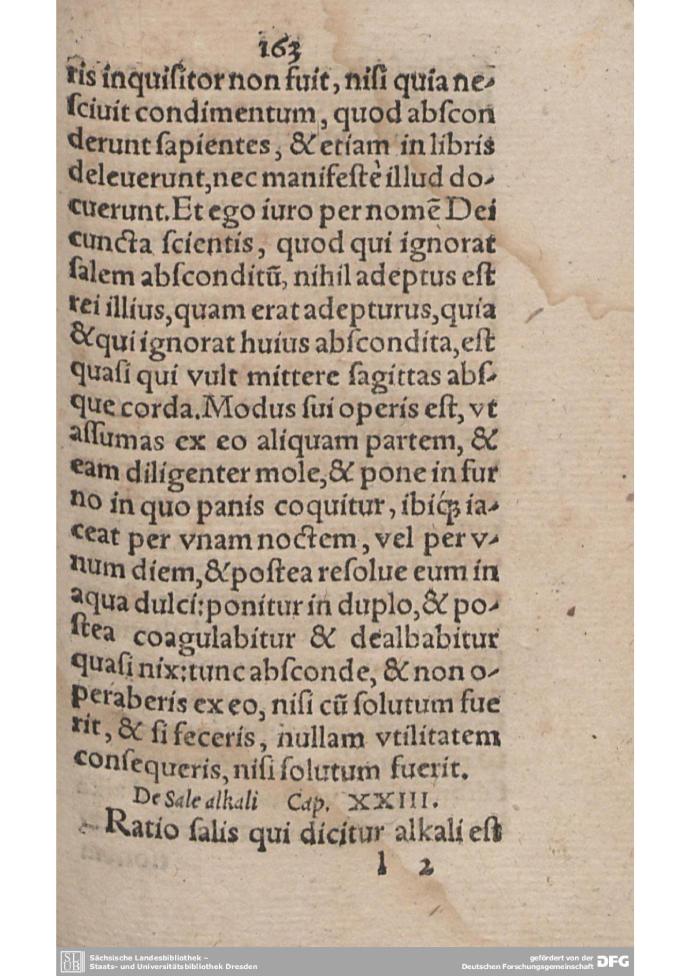 163
ris inquisitor non fuit, nisi quia ne-
sciuit condimentum, quod abscon
derunt sapientes, & etiam in libris
deleuerunt, nec manifestè illud do-
cuerunt. Et ego iuro per nomē Dei
cuncta scientis, quod qui ignorat
salem absconditū, nihil adeptus est
rei illius, quam erat adepturus, quia
& qui ignorat huius abscondita, est
quasi qui vult mittere sagittas abs-
que corda. Modus sui operis est, vt
assumas ex eo aliquam partem, &
eam diligenter mole, & pone in fur
no in quo panis coquitur, ibiq́ꝫ ia-
ceat per vnam noctem, vel per v-
num diem, & postea resolue eum in
aqua dulci: ponitur in duplo, & po-
stea coagulabitur & dealbabitur
quasi nix: tunc absconde, & non o-
peraberis ex eo, nisi cū solutum fue
rit, & si feceris, nullam vtilitatem
consequeris, nisi solutum fuerit.
De Sale alkali Cap. XXIII.
Ratio salis qui dicitur alkali est
l 2
SLUB
Sächsische Landesbibliothek –
Staats- und Universitätsbibliothek Dresden
gefördert von der
Deutschen Forschungsgemeinschaft DFG